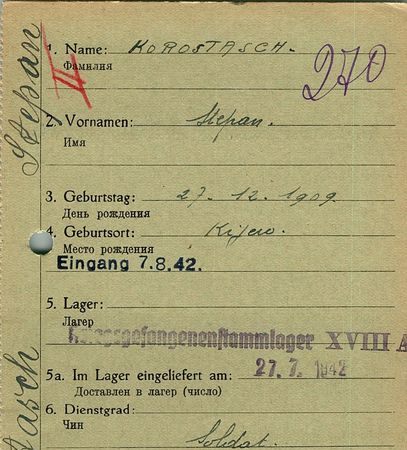 1. Name: KOROSTASCH.
Фамилия
270
II
2. Vornamen: Stepan.
Имя
3. Geburtstag: 27. 12. 1909.
День рождения
4. Geburtsort: Kijew.
Место рождения
Eingang 7.8.42.
5. Lager:
Лагер
Kriegsgefangenenstammlager XVIII A
5a. Im Lager eingeliefert am: 27. 7. 1942
Доставлен в лагер (число)
6. Dienstgrad:
Чин
Soldat.
Stepan
tasch